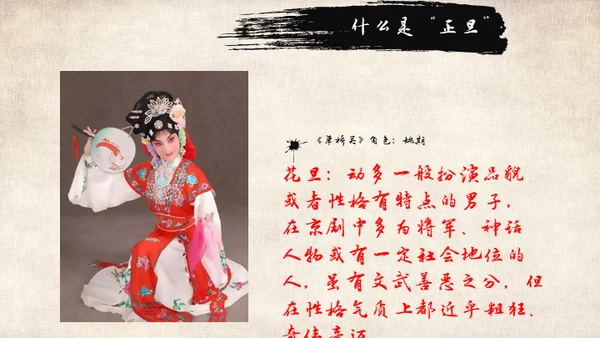 什么是“正旦”
《草桥关》角色：姚期
花旦：动多一般扮演品貌
或者性格有特点的男子，
在京剧中多为将军、神话
人物或有一定社会地位的
人，虽有文武善恶之分，但
在性格气质上都近乎粗狂、
奇伟豪迈